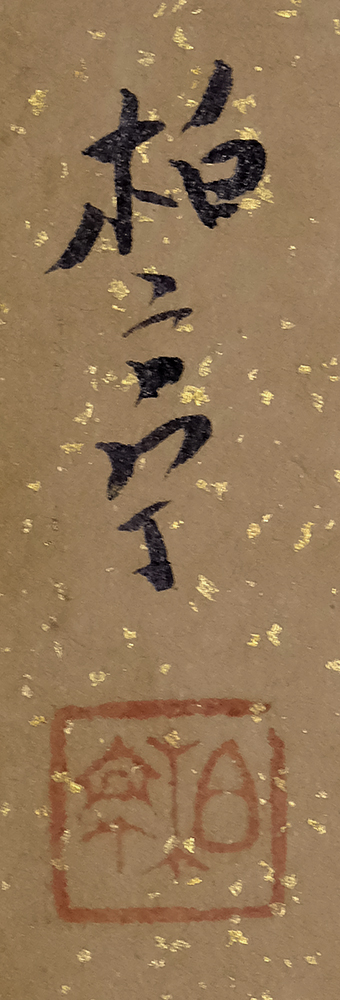 柏亭
柏亭